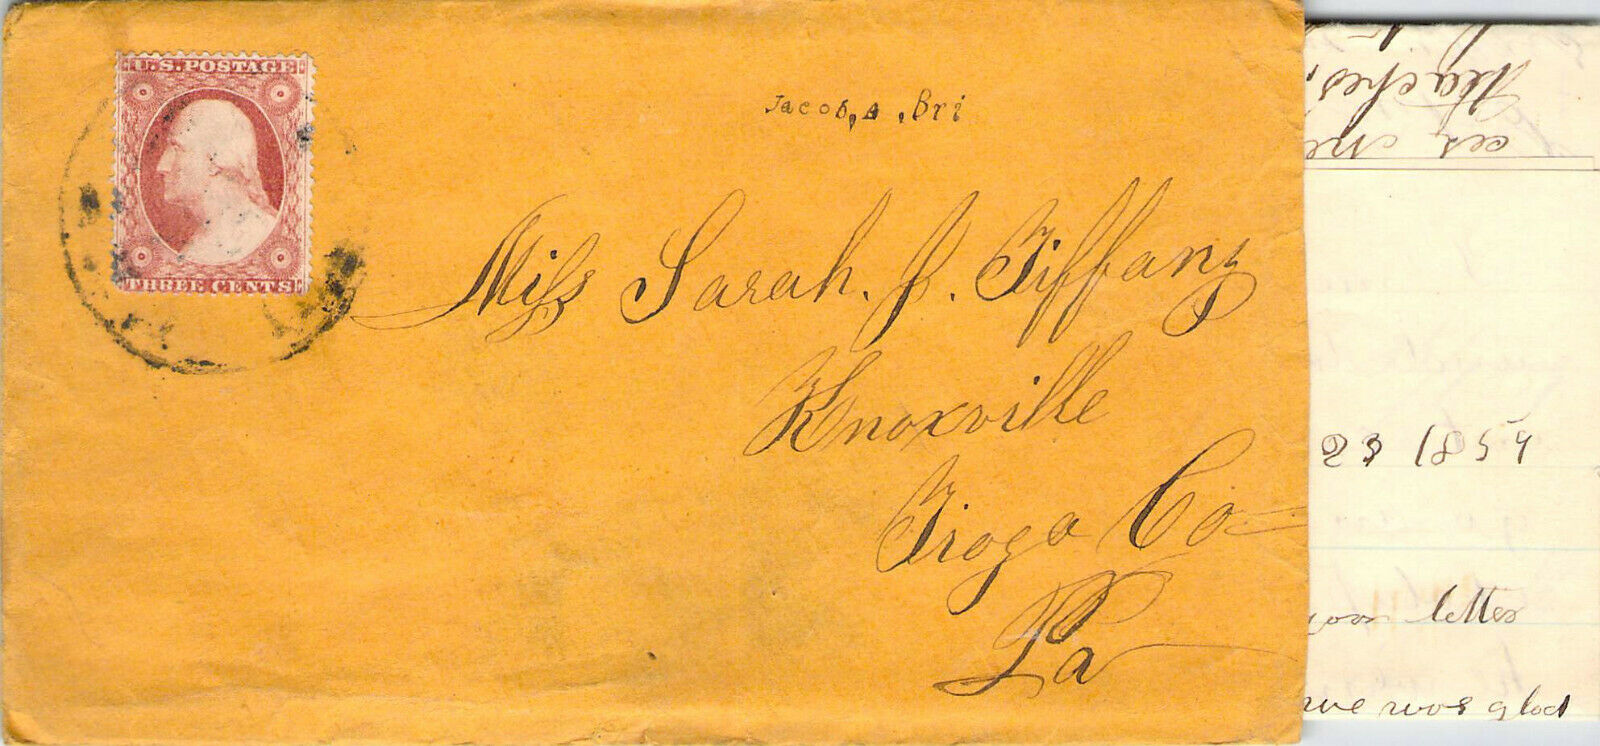 U.S. POSTAGE
THREE CENTS
Jacob, A .Bri
Miss Sarah. J. Tiffany
Knoxville
Tioga Co
Pa
23 1859
letter
we was glad